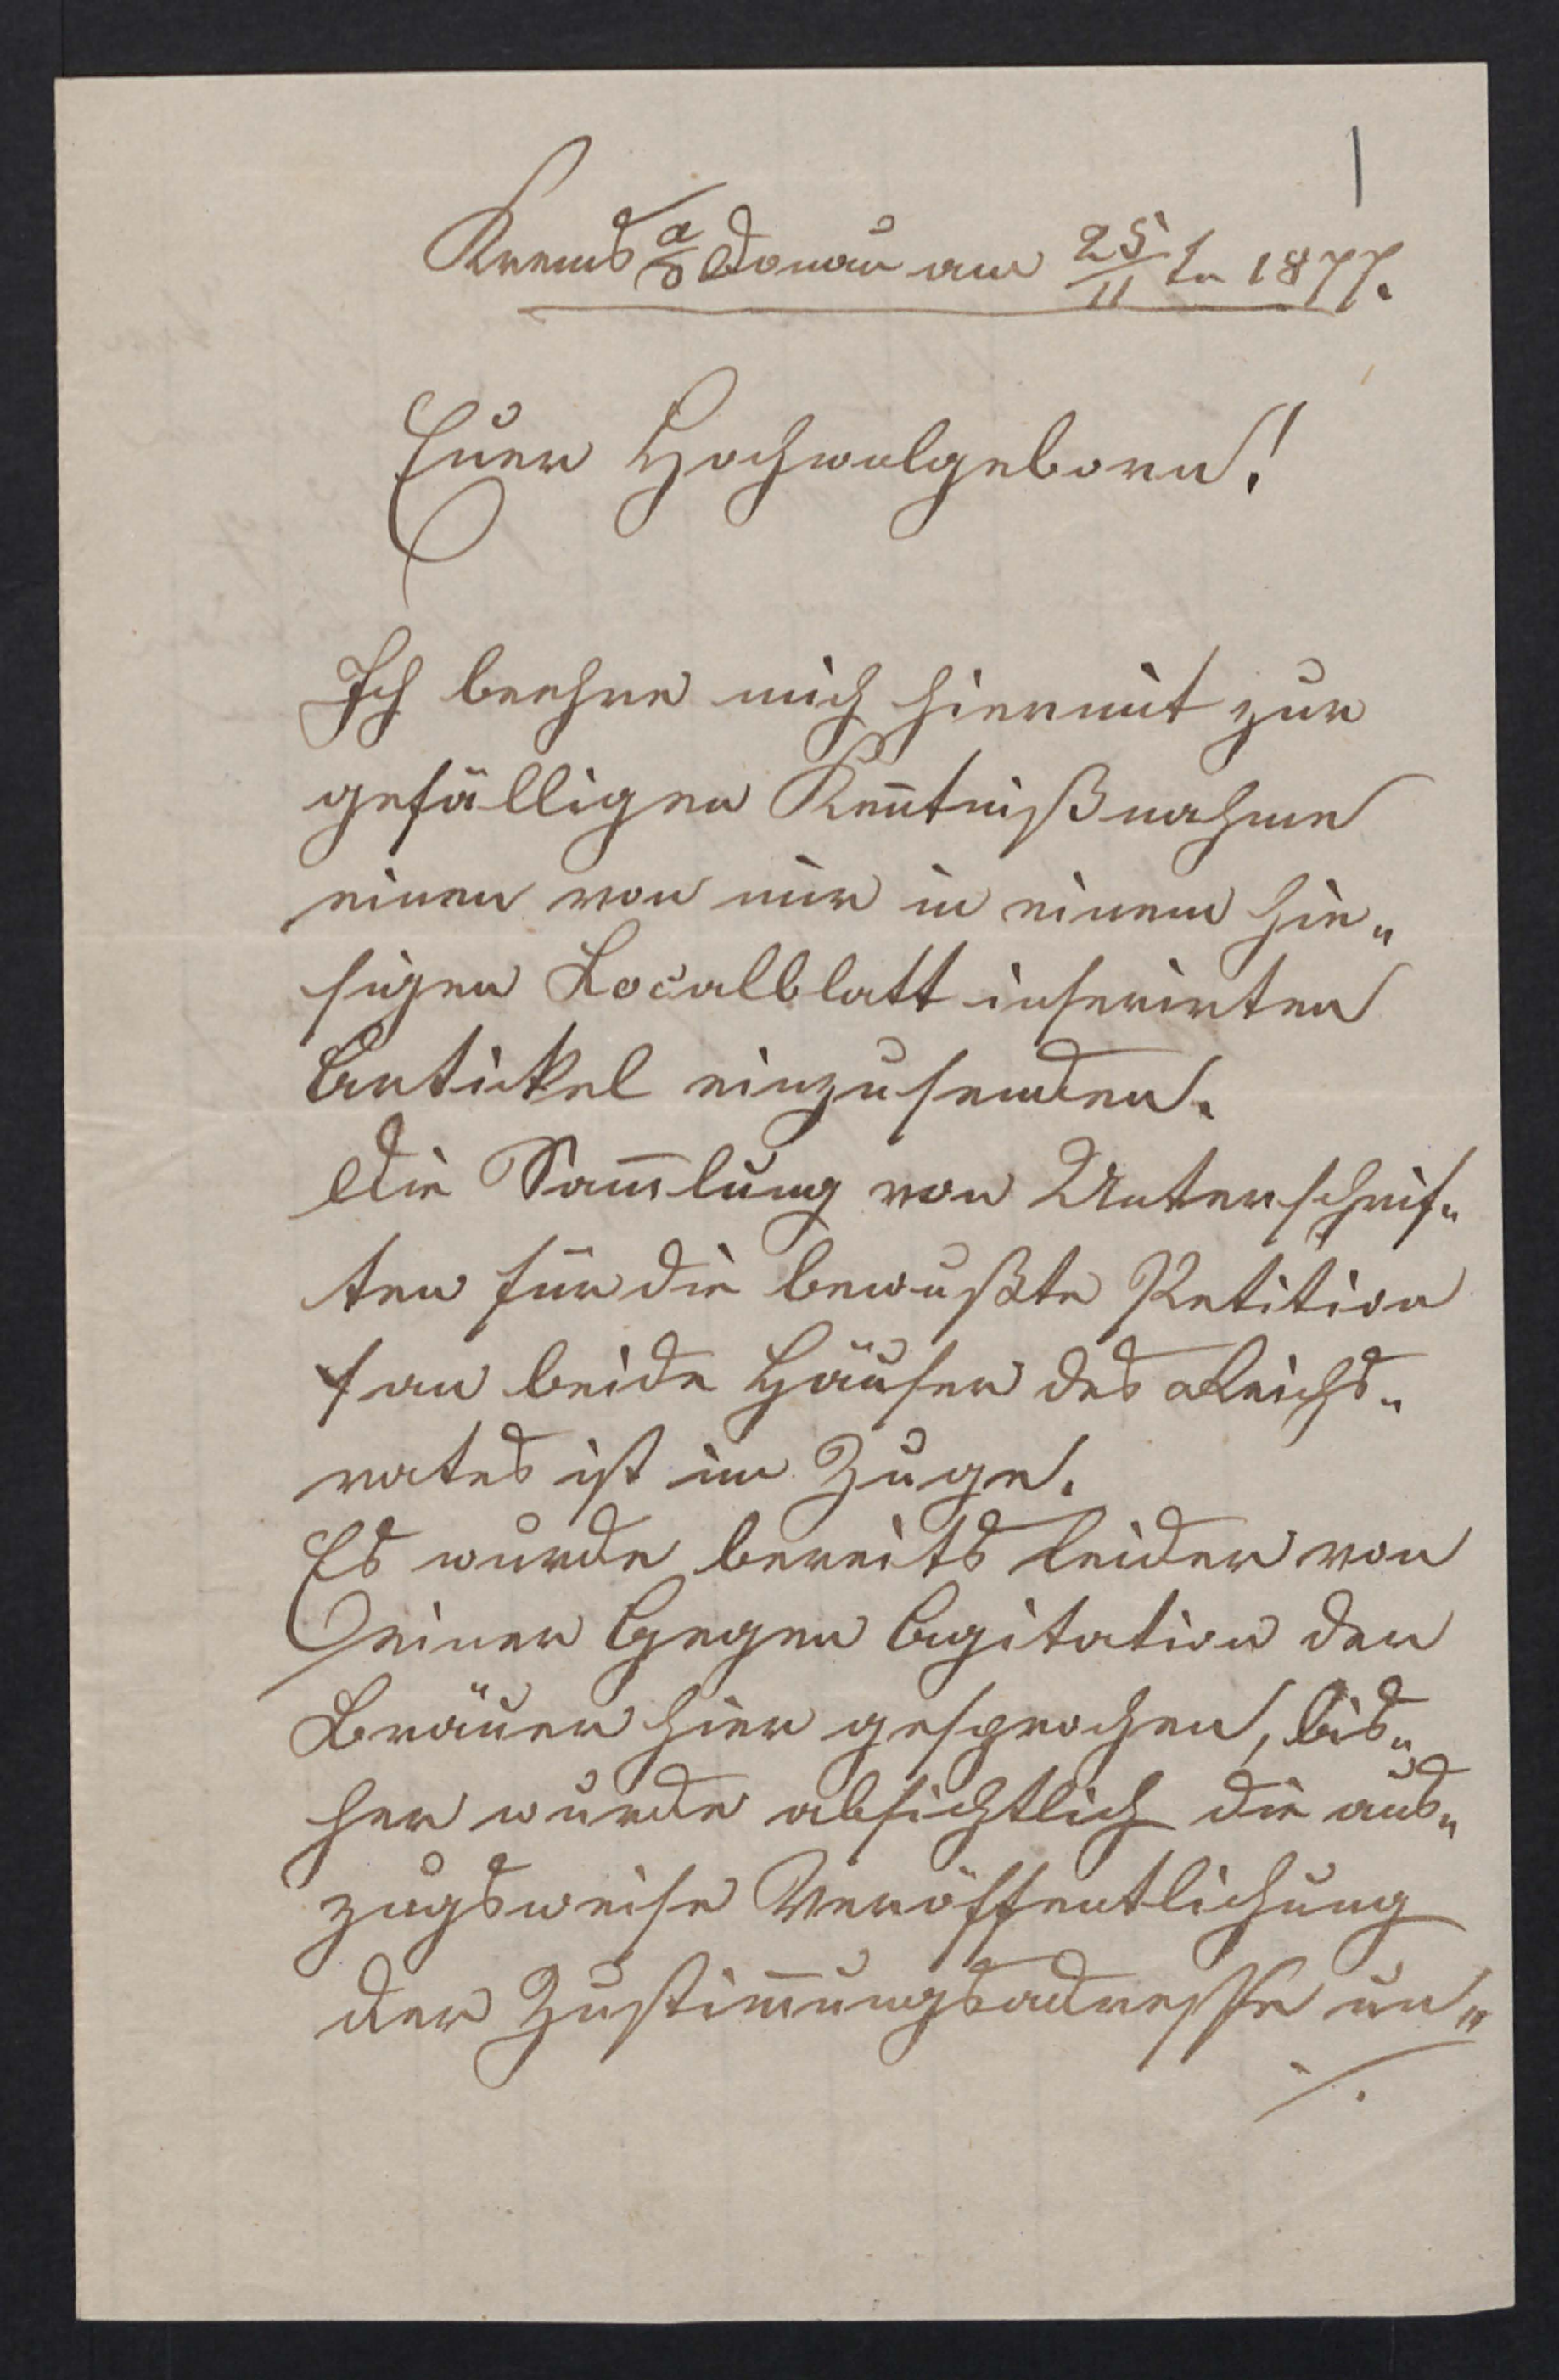 1
Krems a/d Donau am 25/11 ten 1877.
Euer Hochwolgeboren!
Ich beehre mich hiermit zur
gefälligen Keñtnißnahme
einen von mir in einem hie„
sigen Localblatt inserirten
Artickel einzusenden.
Die Sam̄lung von Unterschrif„
ten für die bewußte Petition
an beide Häuser des Reichs„
rates ist im Zuge.
Es wurde bereits leider von
einer Gegen Agitation der
Bräuer hier gesprochen, bis„
her wurde absichtlich die aus„
zugsweise Veröffentlichung
der Zustim̄ungsadresse un„
./.